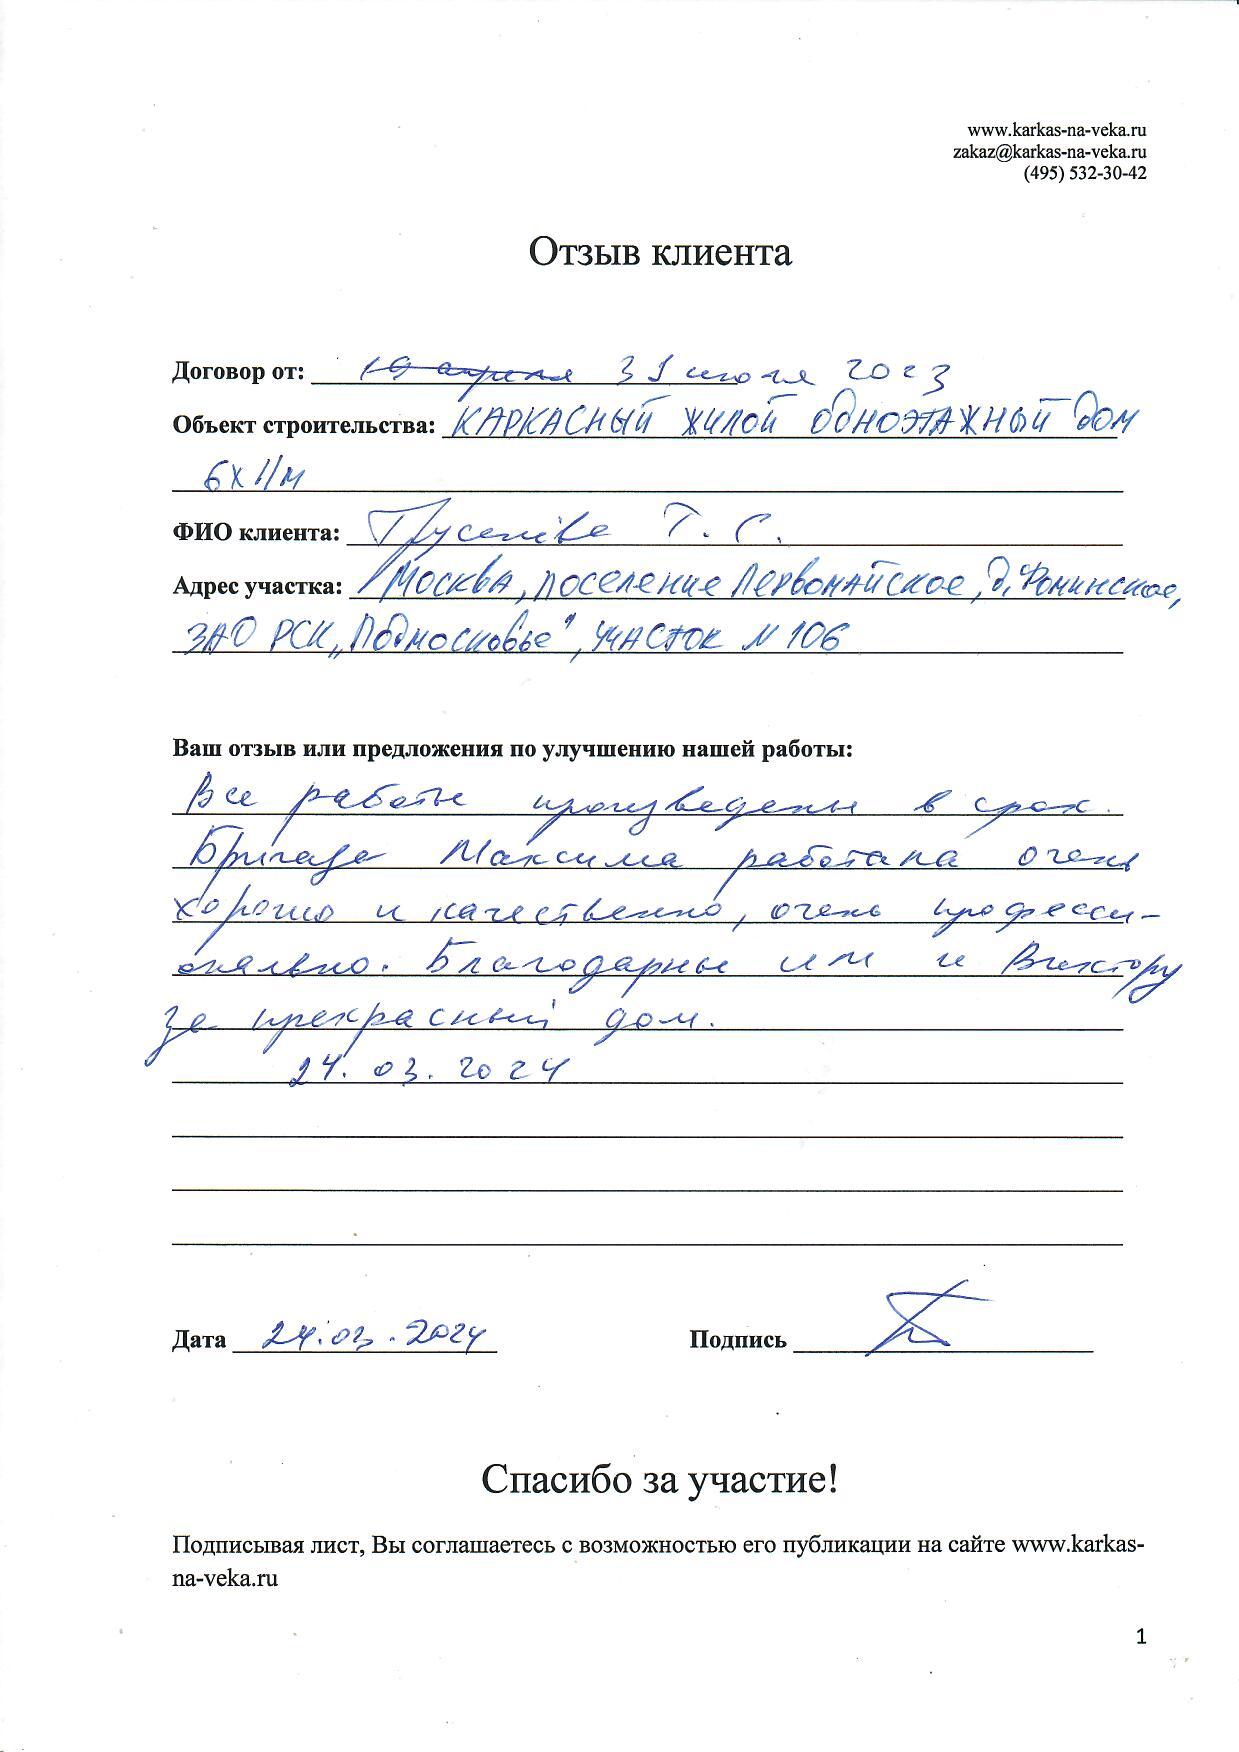 www.karkas-na-veka.ru
zakaz@karkas-na-veka.ru
(495) 532-30-42
Отзыв клиента
Договор от: 19 апреля 31 июля 2023
Объект строительства: КАРКАСНЫЙ ЖИЛОЙ ОДНОЭТАЖНЫЙ ДОМ
6х11м
ФИО клиента: Т. С.
Адрес участка: Москва, поселение Первомайское, д. Фоминское,
ЗАО РСК „Подмосковье", УЧАСТОК N 106
Ваш отзыв или предложения по улучшению нашей работы:
Все работы произведены в срок.
Бригада Максима работала очень
хорошо и качественно, очень професси-
онально. Благодарны им и Виктору
за прекрасный дом.
24.03.2024
Дата 24.03.2024 Подпись
Спасибо за участие!
Подписывая лист, Вы соглашаетесь с возможностью его публикации на сайте www.karkas-
na-veka.ru
1